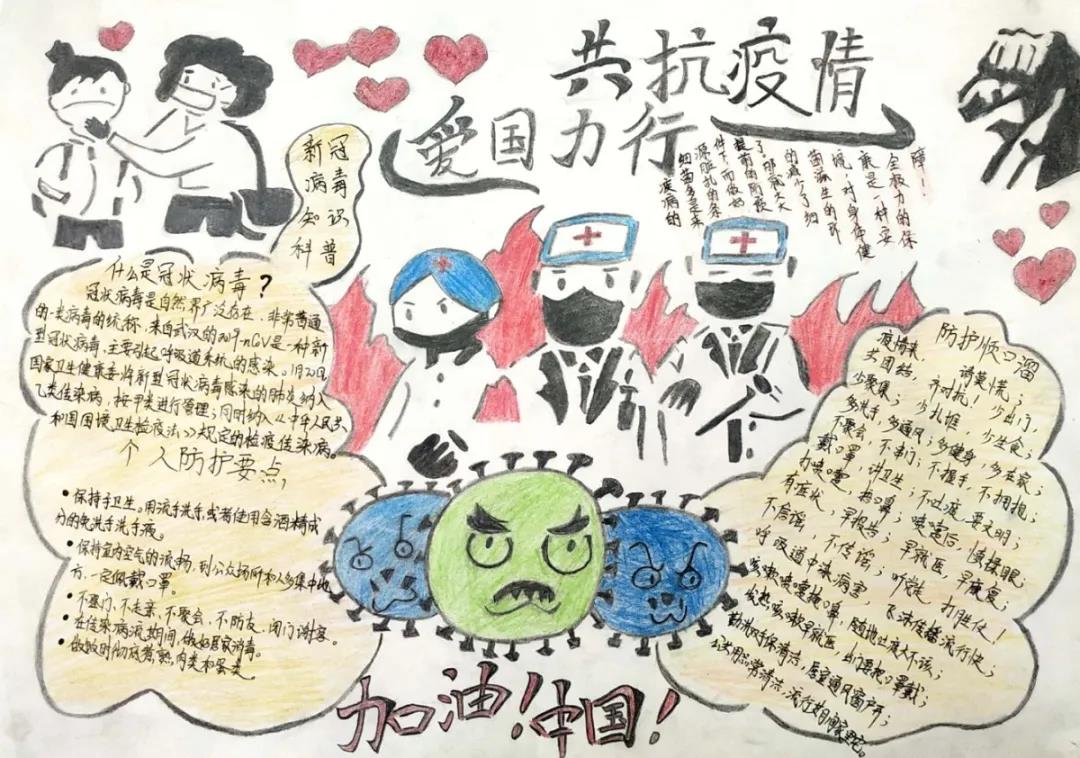 共抗疫情
爱国力行
新冠
病毒
知识
科普
障！
全极力的保
康是一种安
境，对身体健
菌滋生的环
的减少了细
了，那就大大
提前的防疫
件下，而做好
源脏乱的条
细菌多是来
疾病的
什么是冠状病毒？
冠状病毒是自然界广泛存在、非常普通
的一类病毒的统称，来自武汉的2019-nCV是一种新
型冠状病毒，主要引起呼吸道系统的感染。1月20日
国家卫生健康委将新型冠状病毒感染的肺炎纳入
乙类传染病，按甲类进行管理；同时纳入《中华人民共
和国国境卫生检疫法》规定的检疫传染病。
个人防护要点，
•保持手卫生。用流手洗手，或者使用含酒精成
分的免洗手洗手液。
•保持室内空气的流畅，到公众场所和人多集中地
方，一定佩戴口罩。
•不登门、不走亲、不聚会、不访友、闭门谢客。
•在传染病流行期间，做好居家消毒。
•做饭时彻底煮熟肉类和蛋类。
防护顺口溜
疫情来，请莫慌；
齐团结，齐对抗！少出门，
少聚集；少扎堆，少生食；
多洗手，多通风；多健身，多在家；
不聚会，不串门；不握手，不拥抱；
戴口罩，讲卫生；不吐痰，要文明；
打喷嚏，捂口鼻；喷嚏后，慢揉眼；
有症状，早报告；早就医，早康复；
不信谣，不传谣；听党，打胜仗！
呼吸道中染病害，飞沫传播流行快；
咳嗽喷嚏捂口鼻，随地吐痰大不该；
发热咳嗽早就医，出门要把口罩戴；
勤洗双手保清洁，居室通风窗户开；
公共用品常清洁，流行期间
加油！中国！